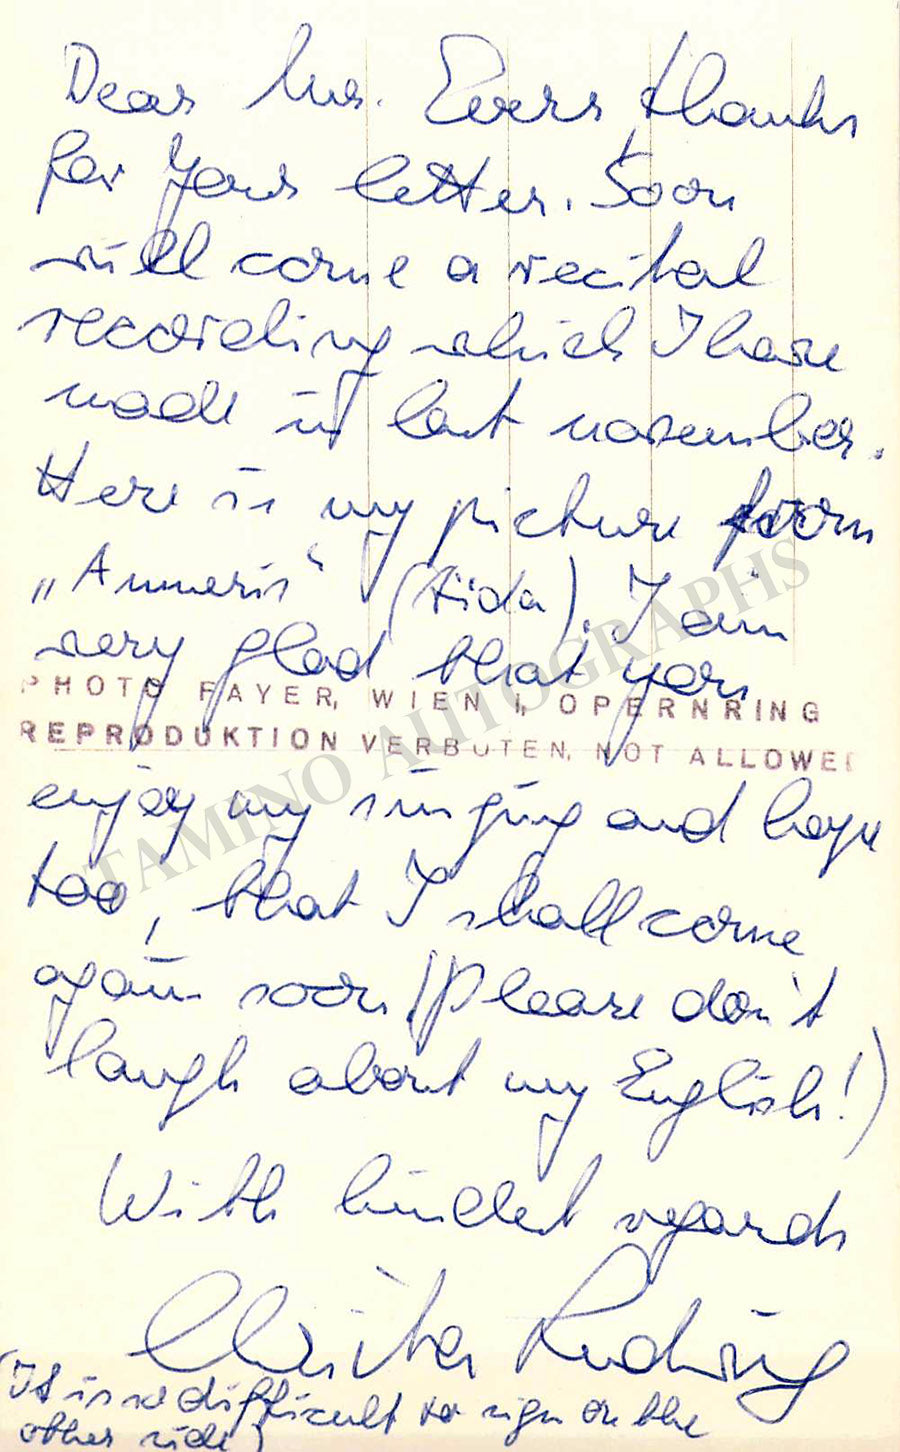 Dear Mrs. Evers, thanks
for Your letter. Soon
will come a recital
recording which I have
made in last november.
Here is my picture from
„Amneris" (Aida). I am
very glad that you
PHOTO FAYER, WIEN I, OPERNRING
REPRODUKTION VERBOTEN, NOT ALLOWED
enjoy my singing and hope
too, that I shall come
again soon! (Please don't
laugh about my English!)
With kindest regards
Christa Ludwig
(It is so difficult to sign on the
other side)
TAMINO AUTOGRAPHS